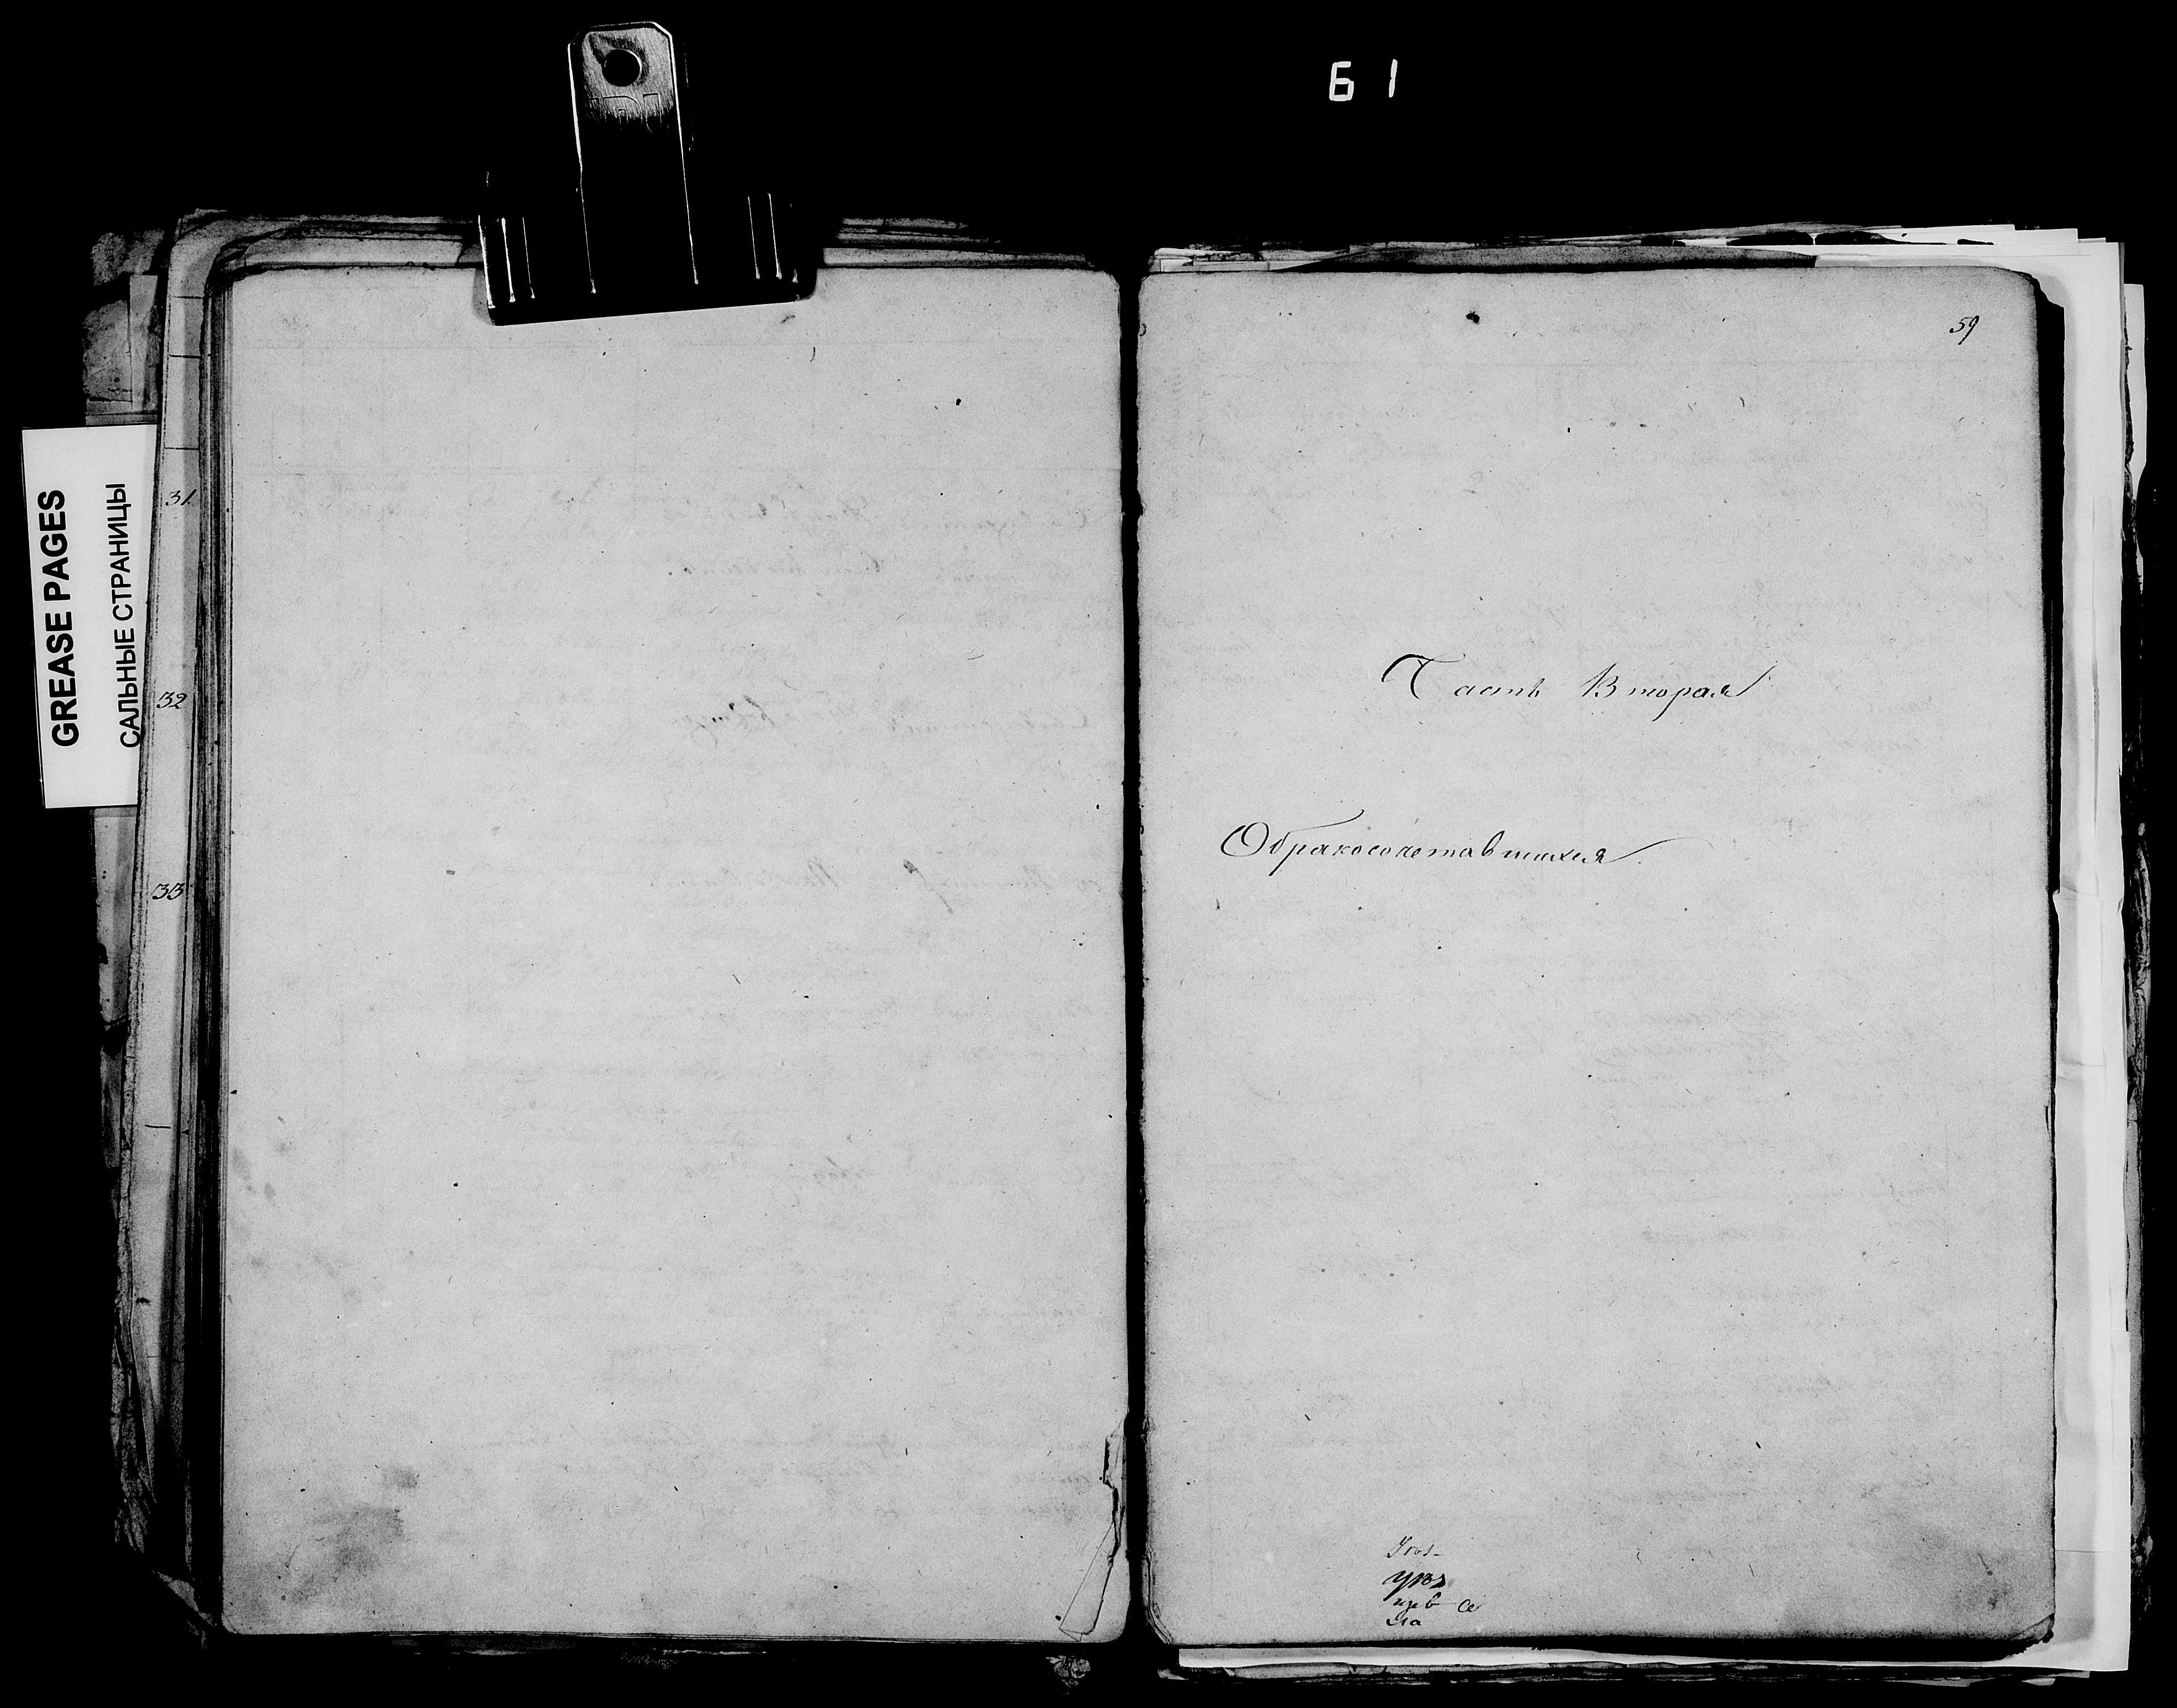 61
GREASE PAGES
САЛЬНЫЕ СТРАНИЦЫ
31
32
33
59
Часть Вторая
Обракосочетавшихся